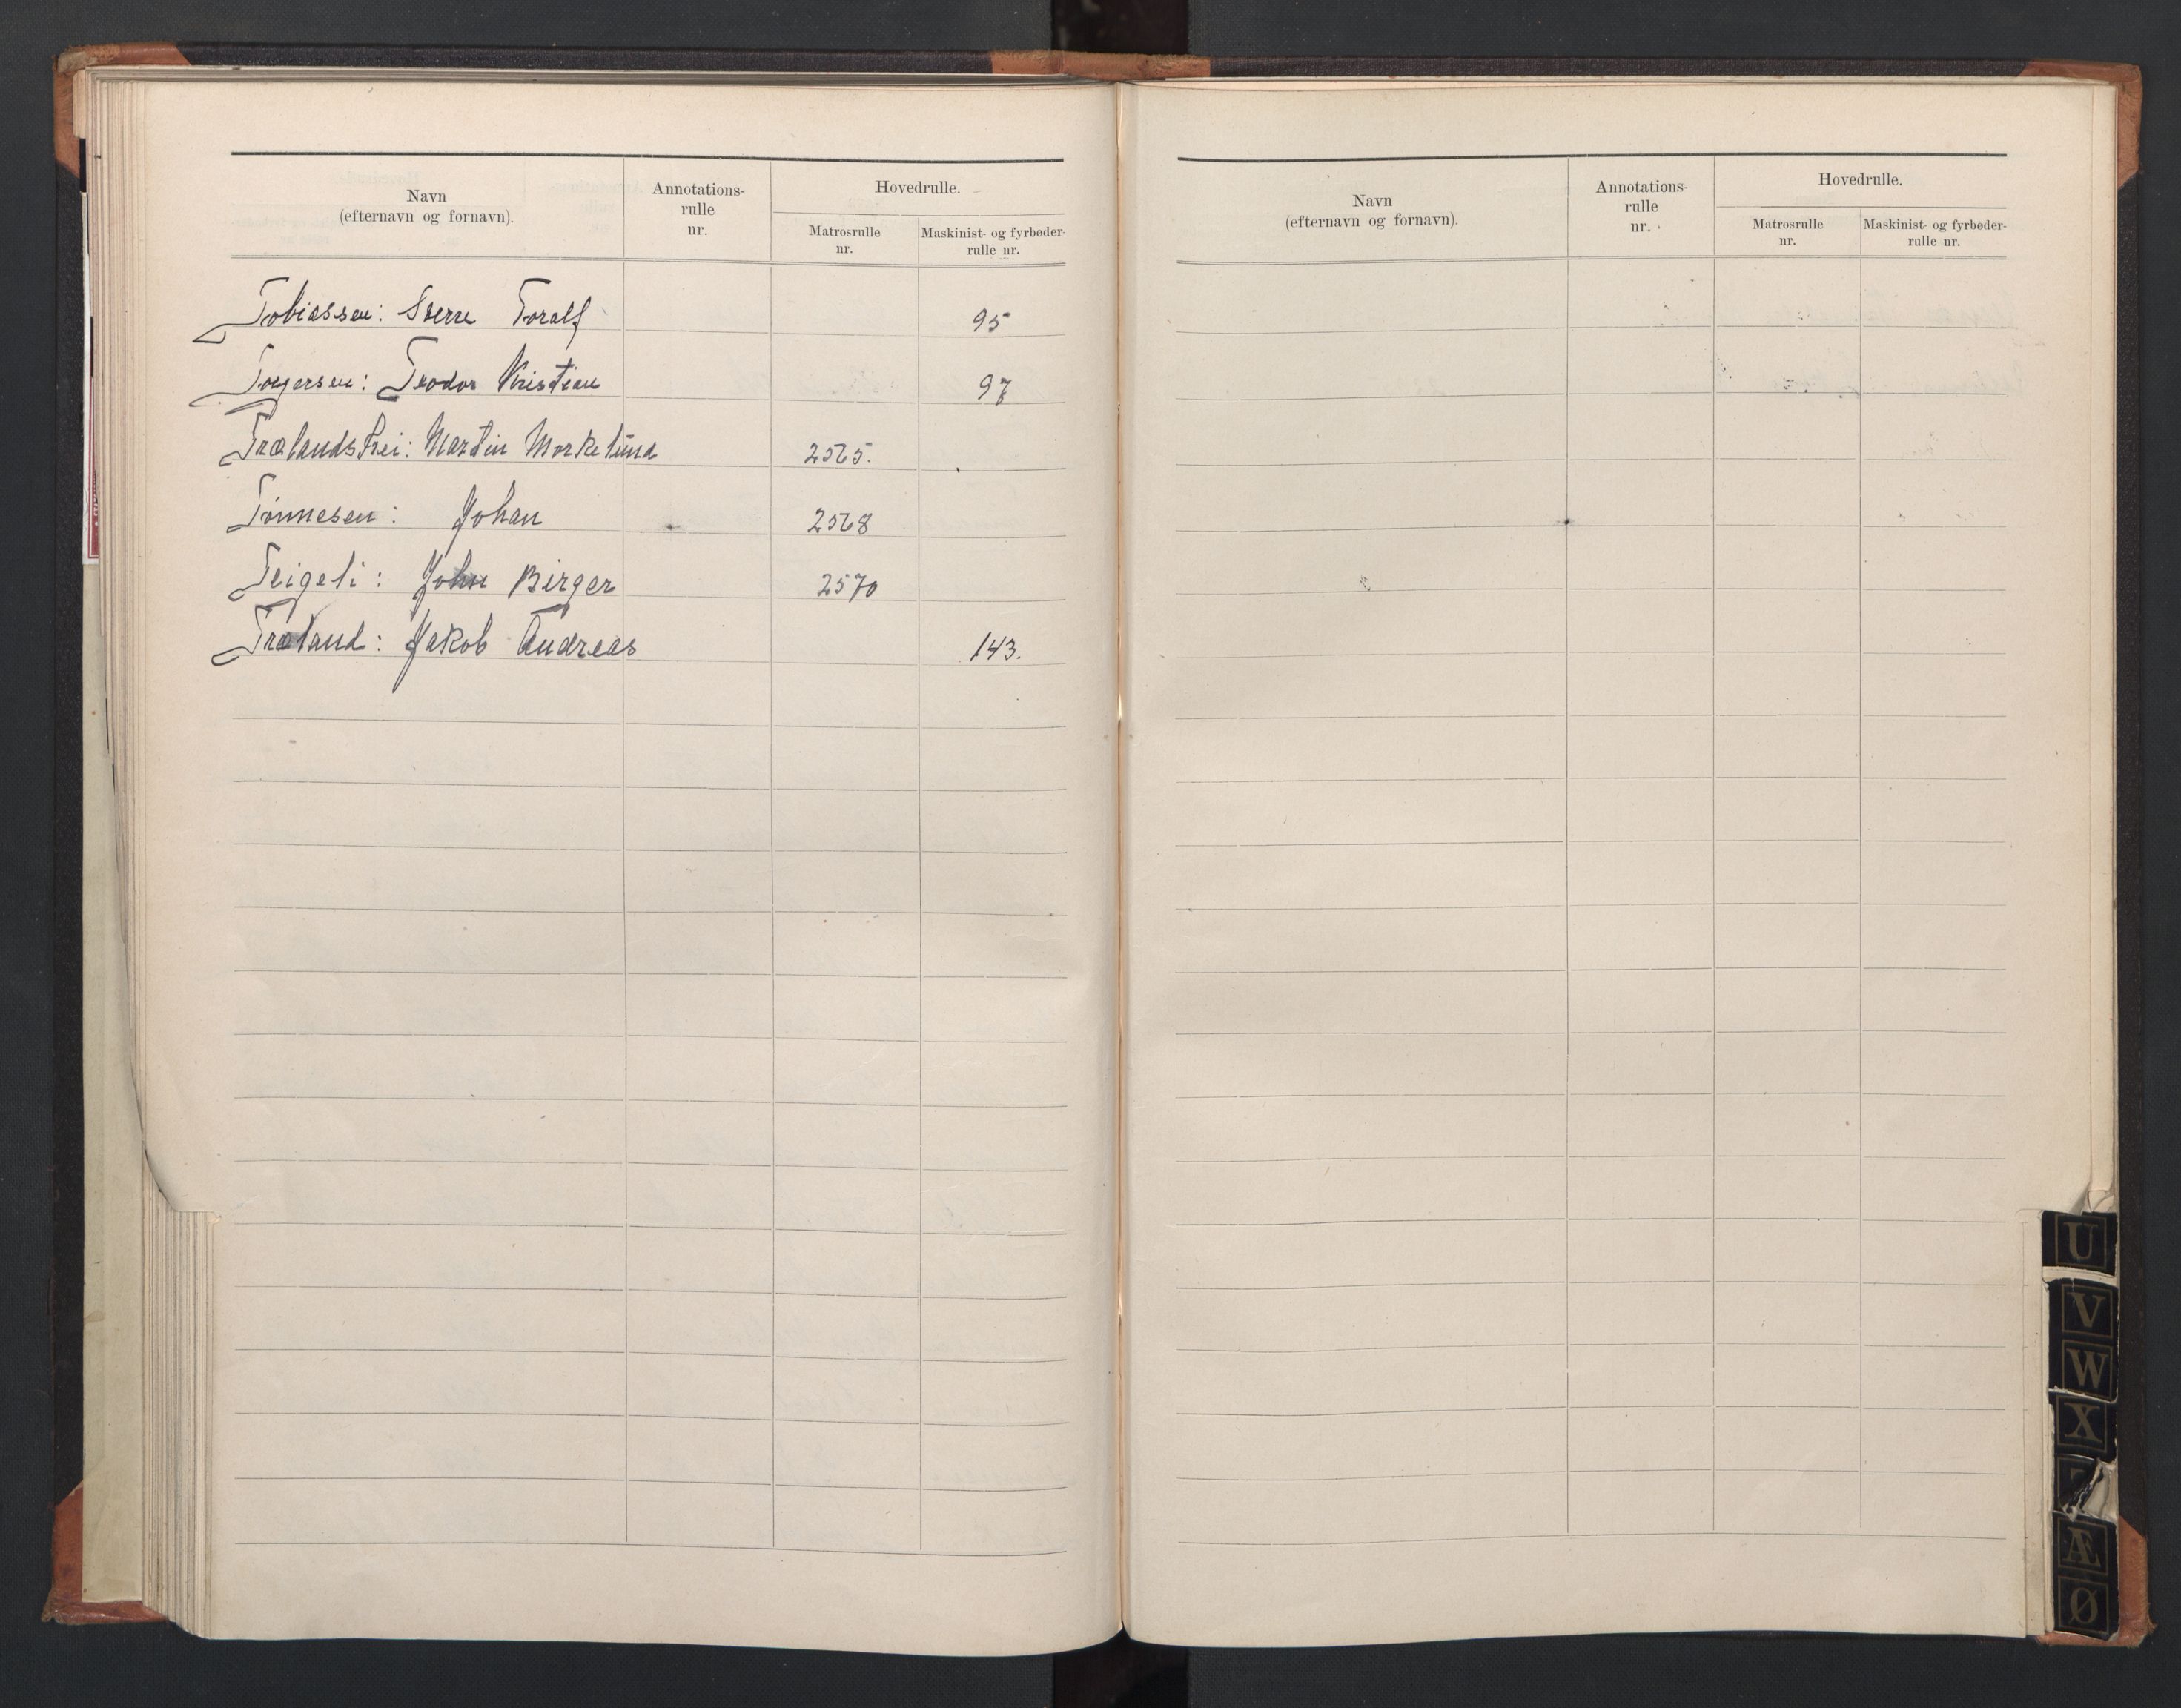 Navn
(efternavn og fornavn).
Annotations-
rulle
nr.
Hovedrulle.
Matrosrulle
nr.
Maskinist- og fyrbøder-
rulle nr.
Tobiassen: Sverre Toralf 95
Torgersen: Teodor Kristian 97
Trælandshei: Martin Morkelund 2565.
Tönnesen: Johan 2568
Teigeli: John Birger 2570
Træland: Jakob Andreas 143.
Navn
(efternavn og fornavn).
Annotations-
rulle
nr.
Hovedrulle.
Matrosrulle
nr.
Maskinist- og fyrbøder-
rulle nr.
U
V
W
X
Æ
Ø